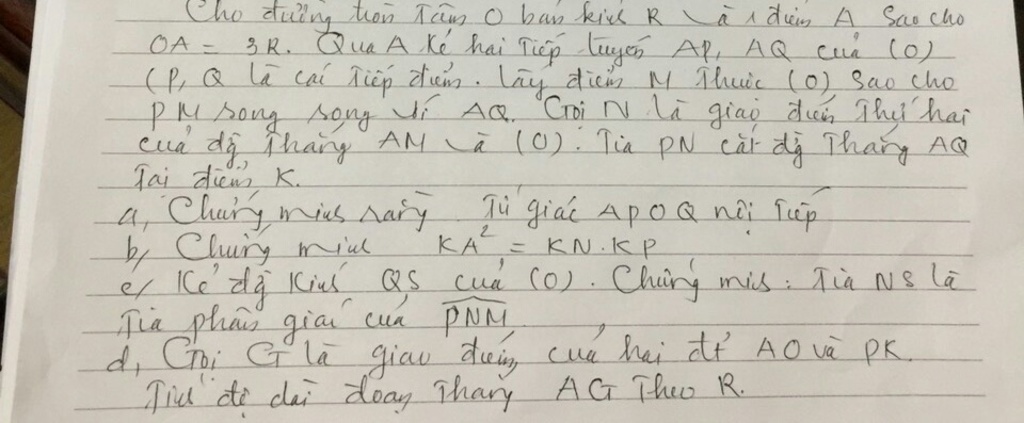 Cho đường tròn Tâm O bán kính R và 1 điểm A Sao cho
OA = 3R. Qua A kẻ hai Tiếp tuyến AP, AQ của (O)
(P, Q là các Tiếp điểm. Lấy điểm M Thuộc (O) Sao cho
PM song song với AQ. Gọi N là giao điểm Thứ hai
của đg Thẳng AM và (O). Tia PN cắt đg Thẳng AQ
Tại điểm K.
a, Chứng minh rằng Tứ giác APOQ nội Tiếp
b, Chứng minh KA² = KN.KP
c, Kẻ đg Kính QS của (O). Chứng minh: Tia NS là
Tia phân giác của PNM
d, Gọi G là giao điểm của hai đt AO và PK.
Tính độ dài đoạn Thẳng AG Theo R.